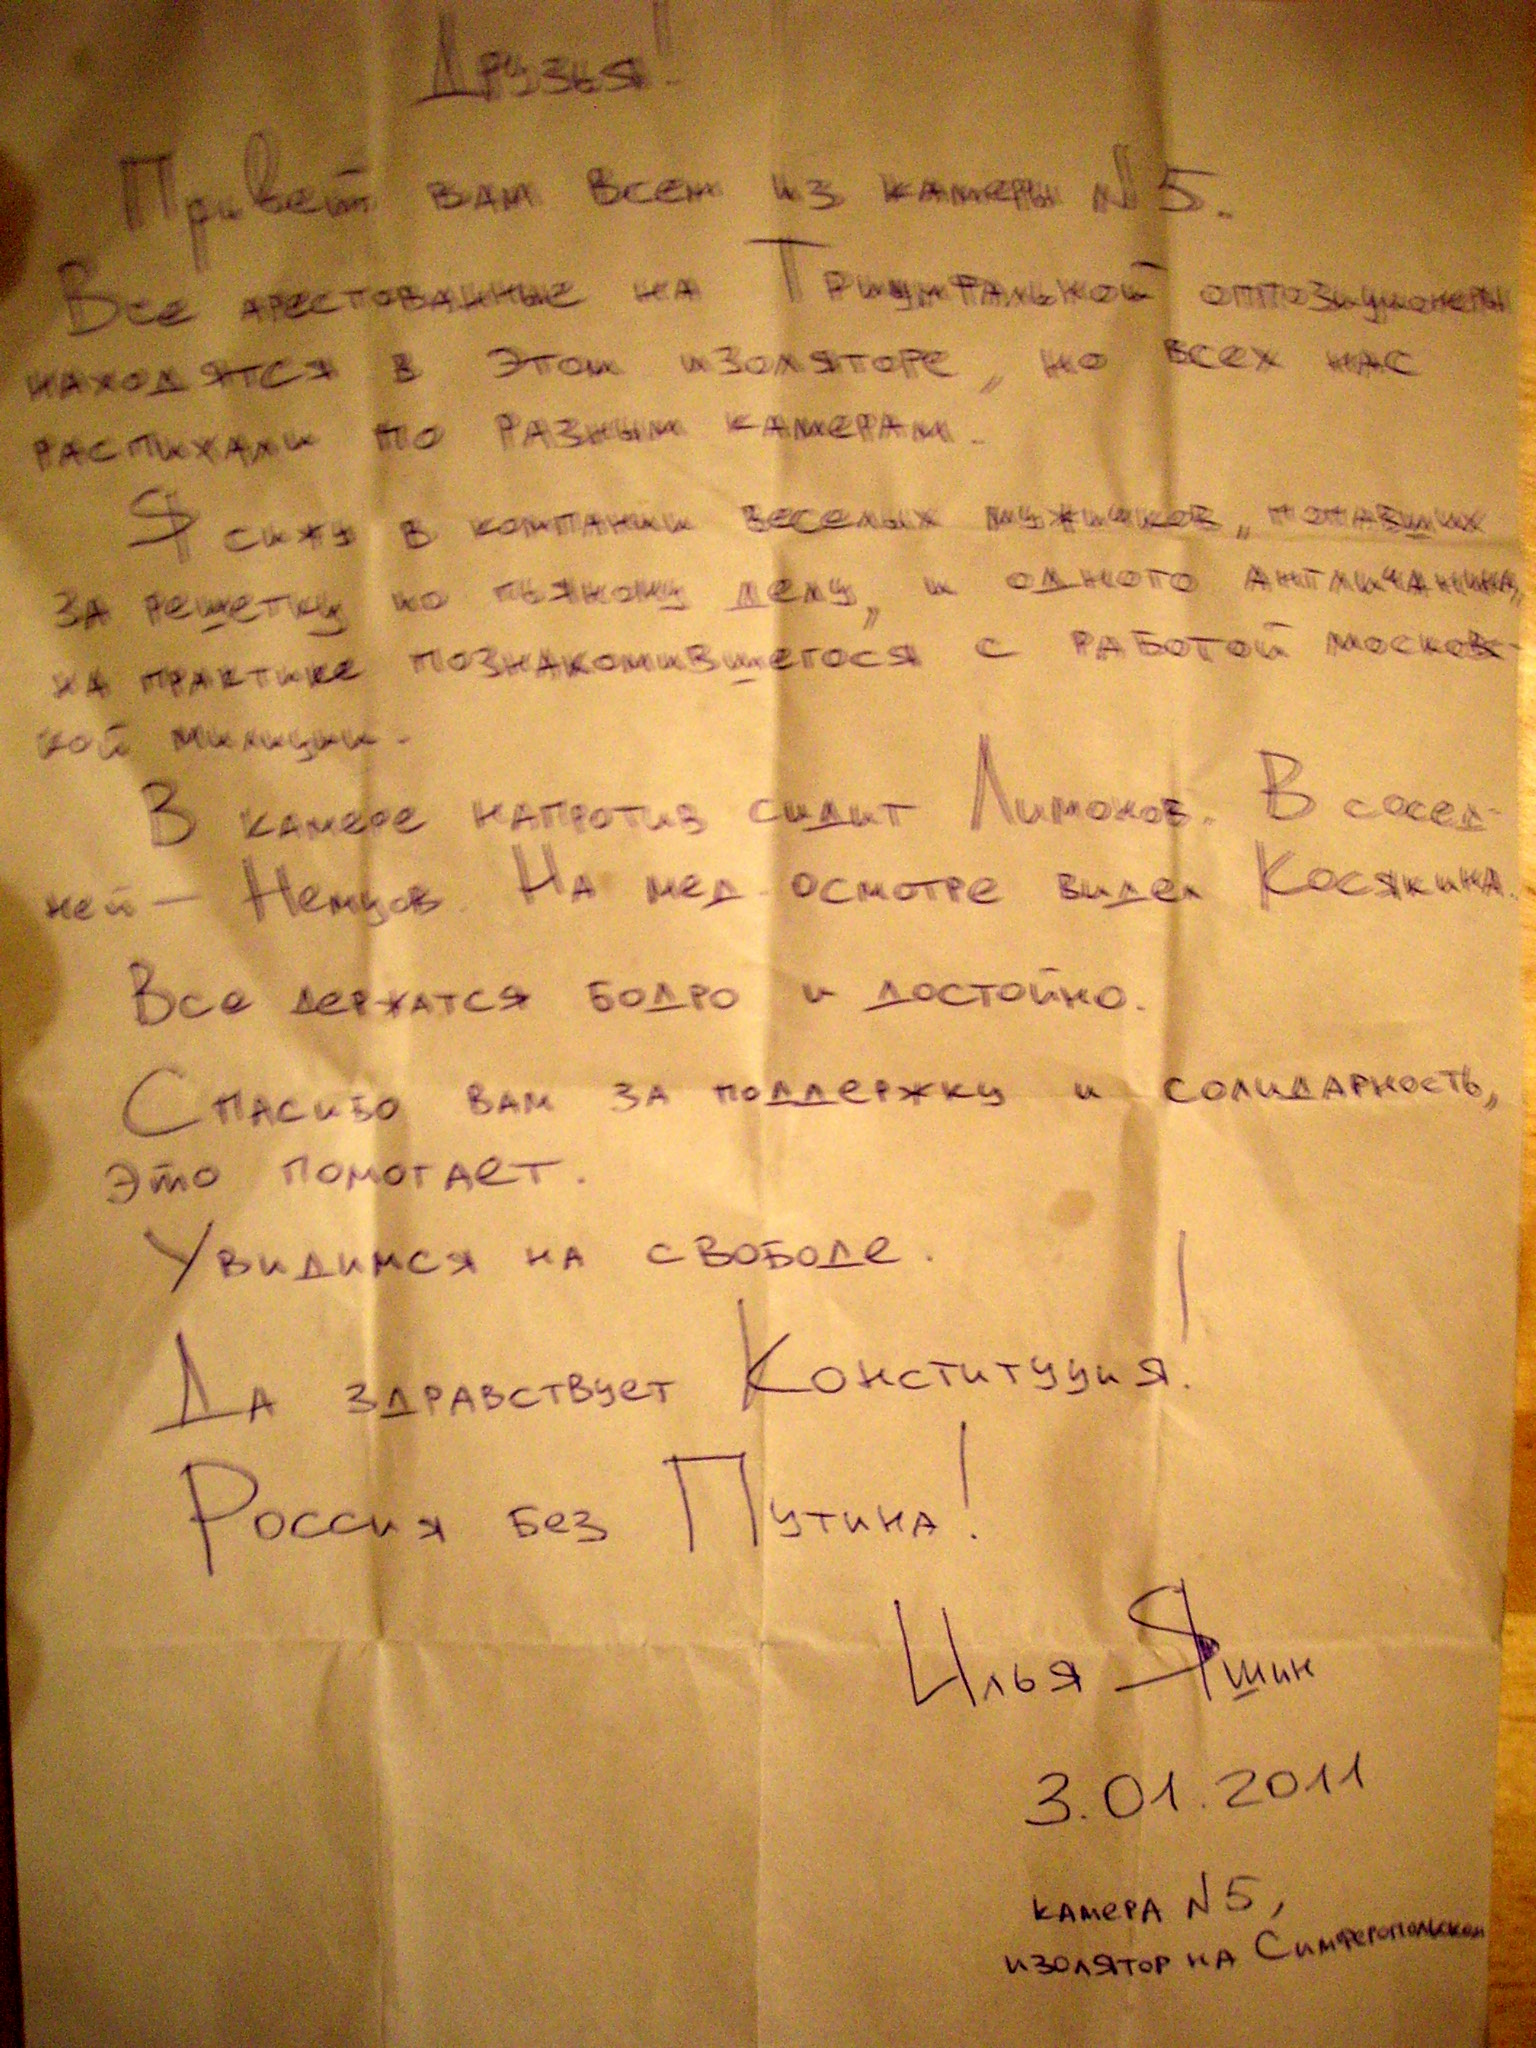 Друзья!
Привет вам всем из камеры N5.
Все арестованные на Триумфальной оппозиционеры
находятся в этом изоляторе, но всех нас
распихали по разным камерам.
Я сижу в компании веселых мужичков, попавших
за решетку по пьяному делу, и одного англичанина,
на практике познакомившегося с работой москов-
кой милиции.
В камере напротив сидит Лимонов. В сосед-
ней — Немцов. На мед. осмотре видел Косякина.
Все держатся бодро и достойно.
Спасибо вам за поддержку и солидарность,
это помогает.
Увидимся на свободе.
Да здравствует Конституция!
Россия без Путина!
Илья Яшин
3.01.2011
камера N5,
изолятор на Симферопольском